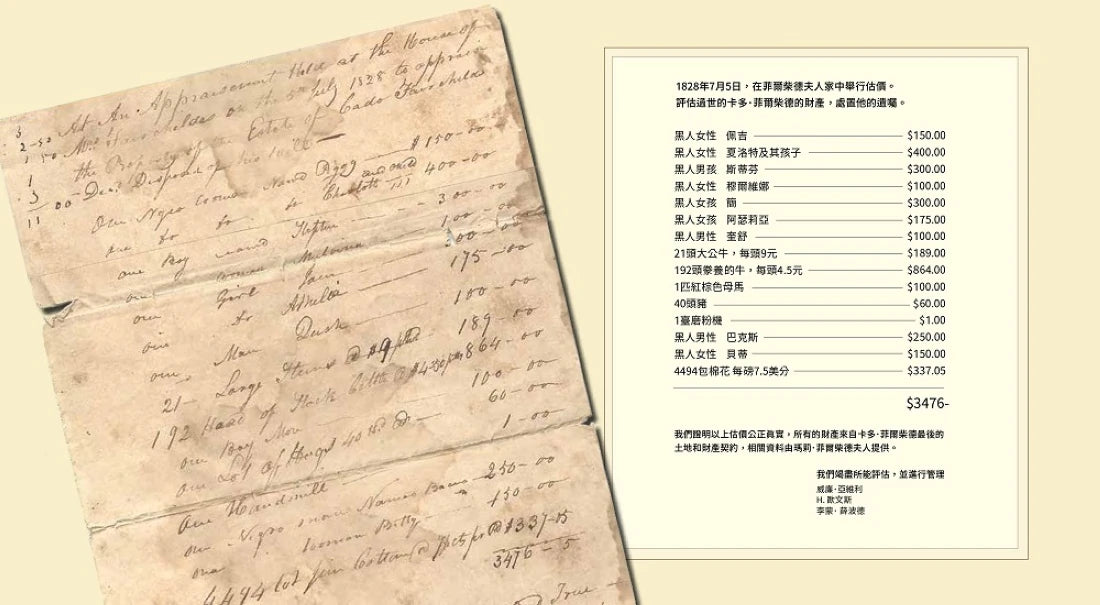 At An Appraisement Held at the House of
Mrs Fairchildes on the 5th July 1828 to appraise
the Property of the Estate of Cado Fairchilds
Dec'd Disposed of his will
One Negro woman Named Peggy $150-00
one do do Charlotte 400-00
one Boy named 300-00
one woman Melvina 100-00
one Girl Jane 300-00
one do 175-00
one Man 100-00
21 Large Steers @ $9 189-00
192 Head of Stock Cattle @ $4.50 864-00
one Bay Mare 100-00
one Lot of Hogs 40 60-00
one Handmill 1-00
one Negro man Names 250-00
one woman Betty 150-00
4494 337-05
3476-5
True
3
2-50
1 50
1
3 00
11
1828年7月5日,在菲爾柴德夫人家中舉行估價。
評估過世的卡多·菲爾柴德的財產,處置他的遺囑。
黑人女性 佩吉 $150.00
黑人女性 夏洛特及其孩子 $400.00
黑人男孩 斯蒂芬 $300.00
黑人女性 穆爾維娜 $100.00
黑人女孩 簡 $300.00
黑人女孩 阿瑟莉亞 $175.00
黑人男性 奎舒 $100.00
21頭大公牛,每頭9元 $189.00
192頭豢養的牛,每頭4.5元 $864.00
1匹紅棕色母馬 $100.00
40頭豬 $60.00
1臺磨粉機 $1.00
黑人男性 巴克斯 $250.00
黑人女性 貝蒂 $150.00
4494包棉花 每磅7.5美分 $337.05
$3476-
我們證明以上估價公正真實,所有的財產來自卡多·菲爾柴德最後的
土地和財產契約,相關資料由瑪莉·菲爾柴德夫人提供。
我們竭盡所能評估,並進行管理
威廉·亞維利
H. 歐文斯
李蒙· 薛波德